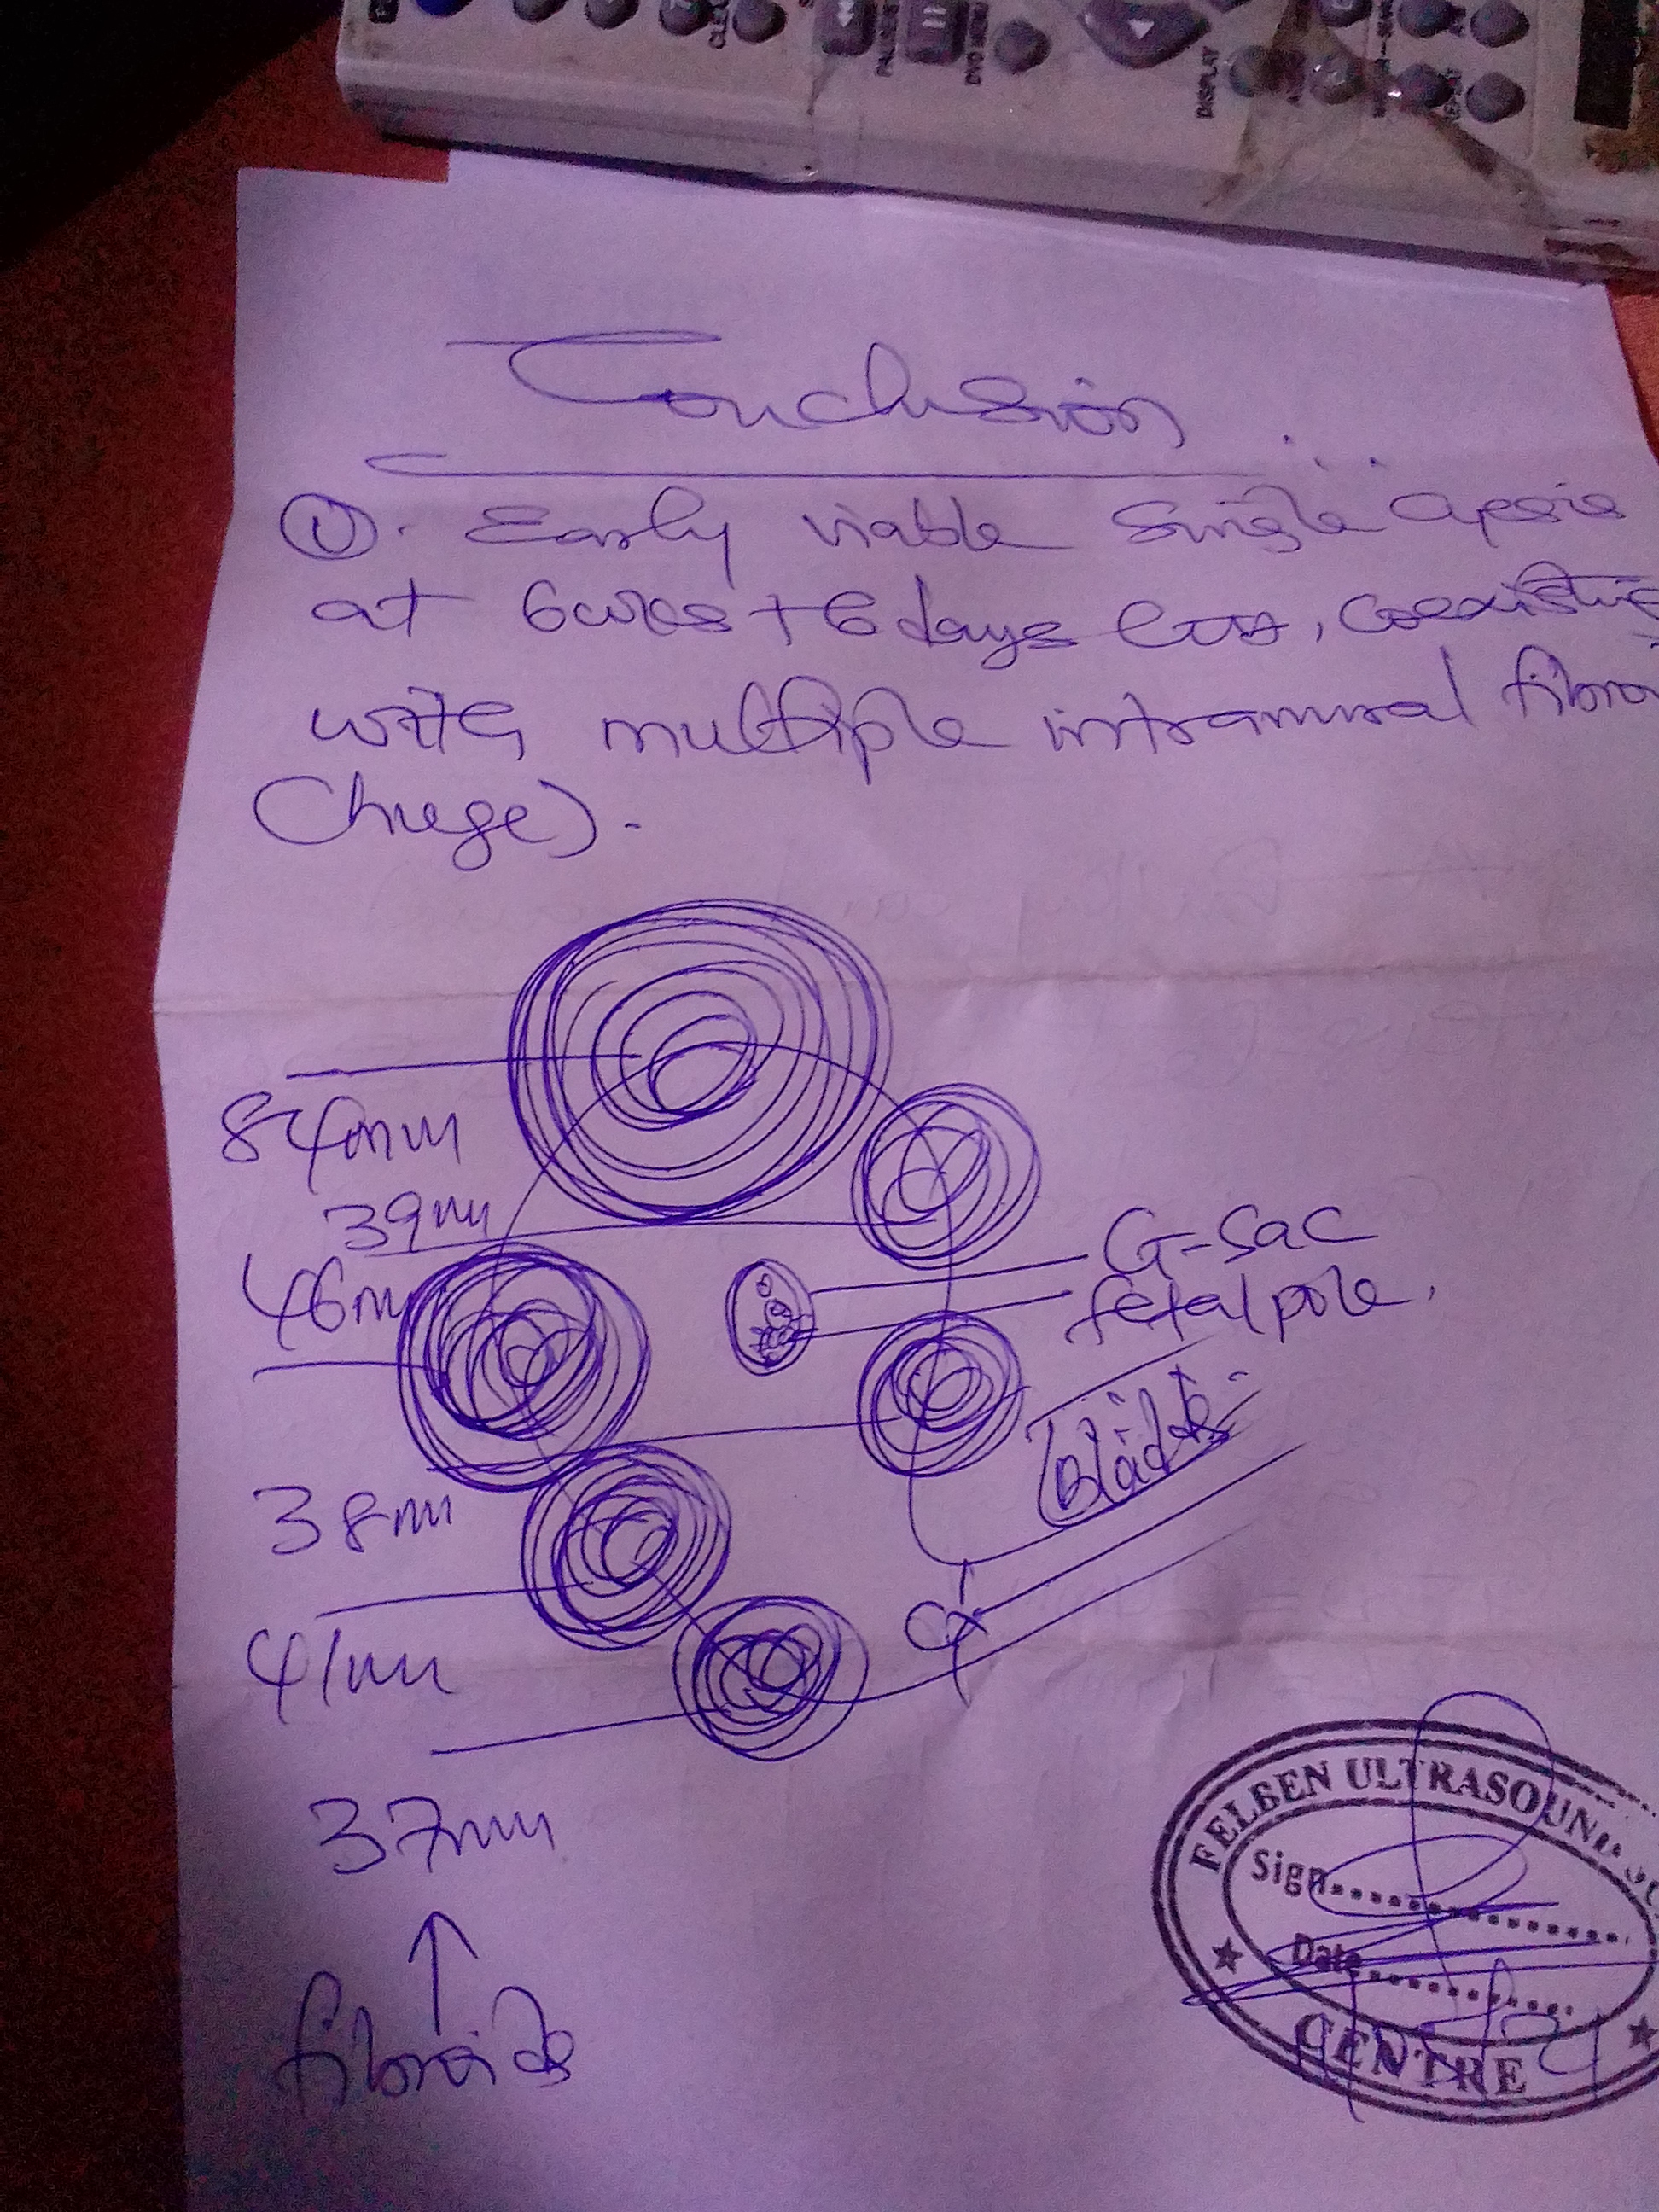 Conclusion
①. Early viable single
at 6wks + 6days coexisting
with multiple intramural fibro
(huge).
84mm
39mm
46mm
G-sac
fetal pole.
38mm
41mm
Cx
37mm
↑
fibroids
FELBEN ULTRASOUN
Sign
Date
CENTRE
CLE
PAUSE
DVD MENU
DISPLAY